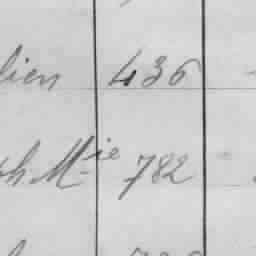 lien 436
ph Mie 782